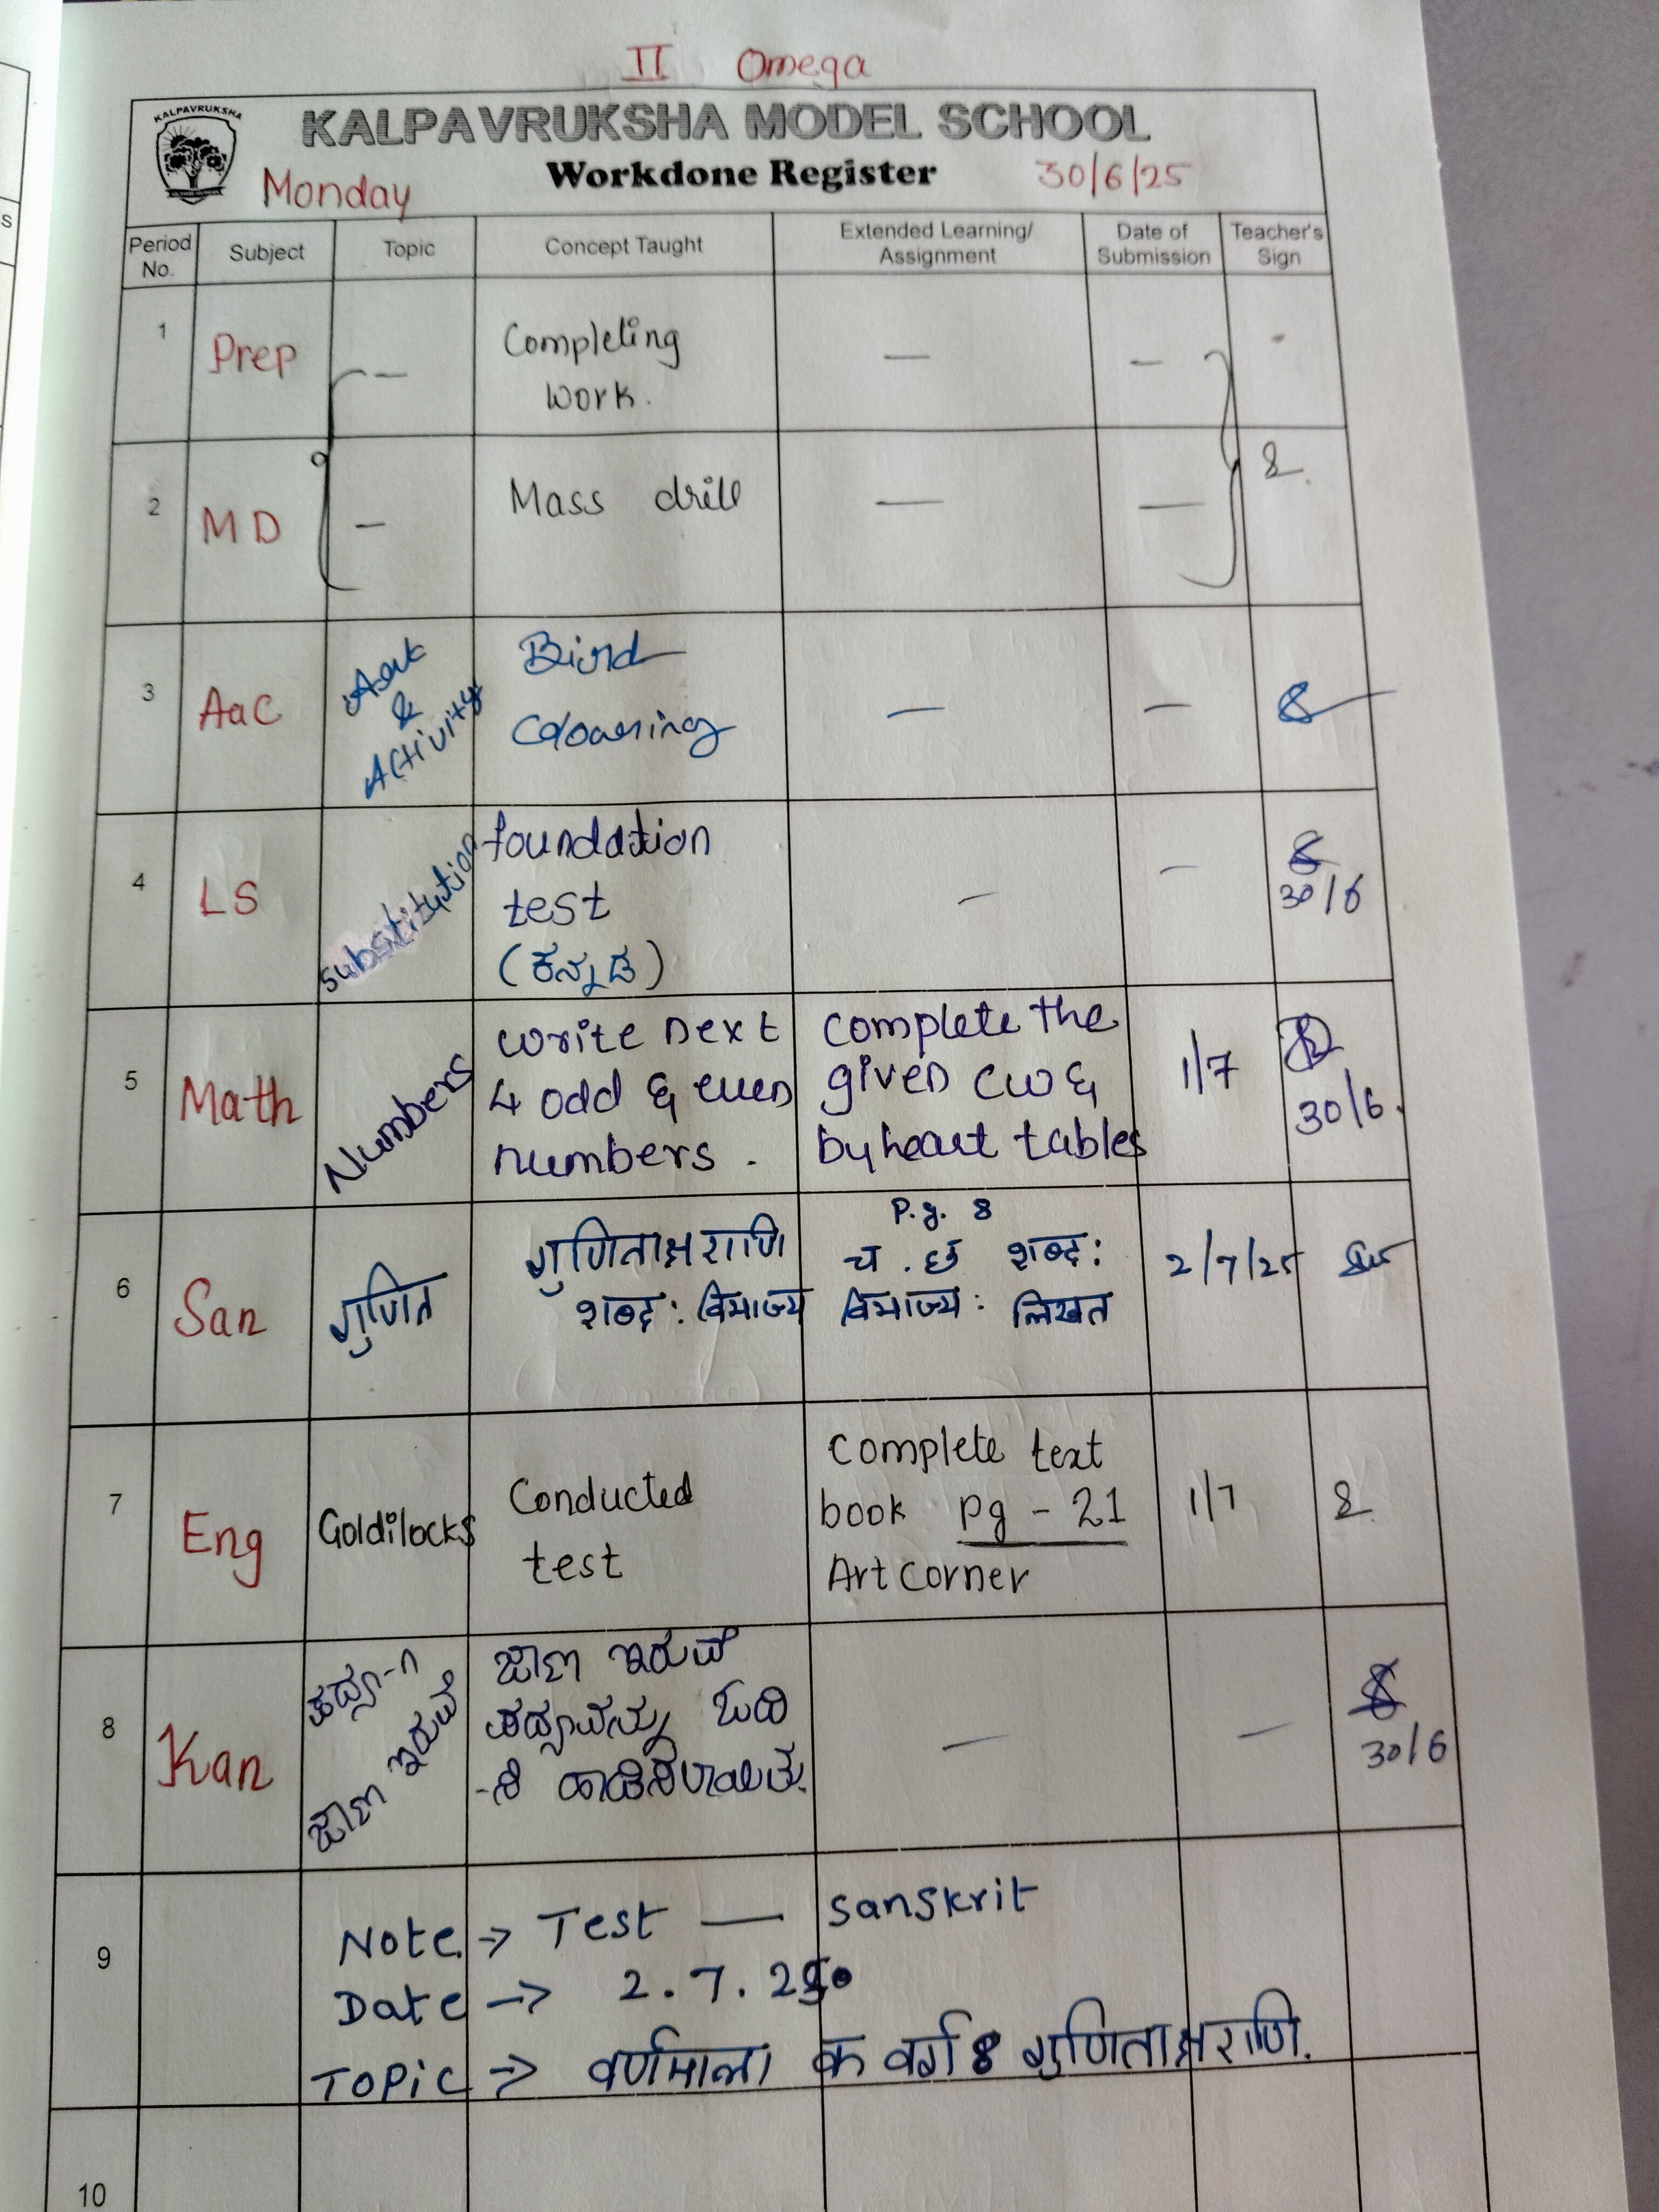 II Omega
KALPAVRUKSHA
KALPAVRUKSHA MODEL SCHOOL
Monday Workdone Register 30/6/25
Period No. Subject Topic Concept Taught Extended Learning/ Assignment Date of Submission Teacher's Sign
1 Prep — Completing — —
work.
2 MD — Mass drill — —
3 AaC Art & Activity Bird — —
Colouring
4 LS Substitution foundation — —
test
(ಕನ್ನಡ) 30/6
5 Math Numbers write next complete the 1/7
4 odd & even given cw &
numbers. byheart tables 30/6.
P.g. 8
6 San गुणित गुणिताक्षराणि च . छ शब्द: 2/7/25
शब्द: विभाज्य विभाज्य: लिखत
7 Eng Goldilocks Conducted Complete text 1/7
test book pg - 21
Art Corner
8 Kan ಪದ್ಯ-೧ ಜಾಣ ಇರುವೆ — —
ಜಾಣ ಇರುವೆ ಪದ್ಯವನ್ನು ಓದಿ
-ಸಿ ಹಾಡಿಸಲಾಯಿತು. 30/6
9 Note → Test — Sanskrit
Date → 2.7.25
Topic → वर्णमाला क वर्ग & गुणिताक्षराणि.
10